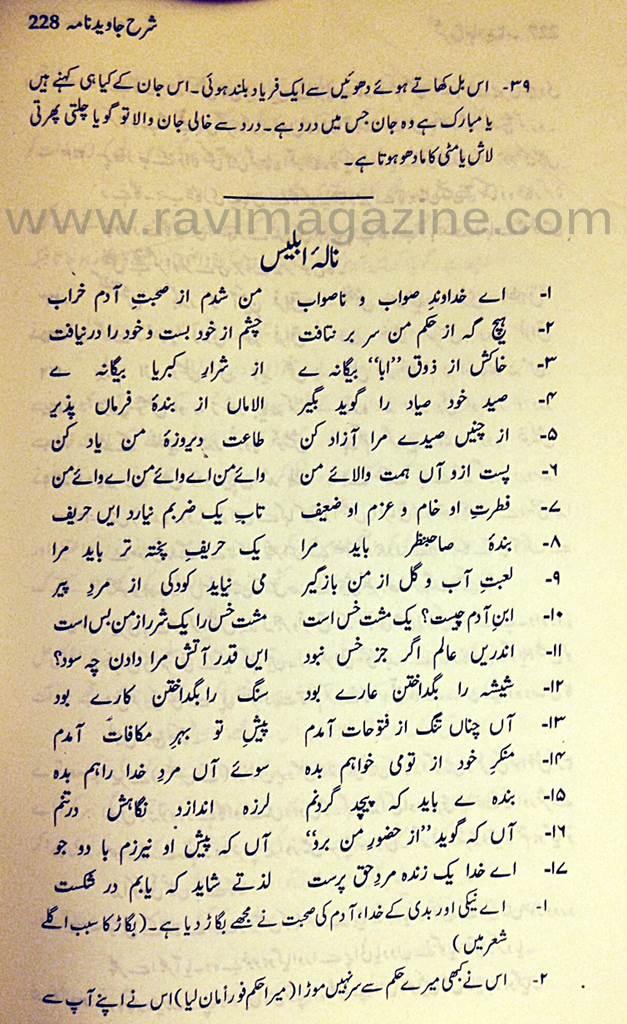 شرح جاوید نامہ 228
۳۹- اس بل کھاتے ہوئے دھوئیں سے ایک فریاد بلند ہوئی۔ اس جان کے کیا ہی کہنے ہیں
یا مبارک ہے وہ جان جس میں درد ہے۔ درد سے خالی جان والا تو گویا چلتی پھرتی
لاش یا مٹی کا مادھو ہوتا ہے۔
www.ravimagazine.com
نالۂ ابلیس
۱- اے خداوندِ صواب و ناصواب من شدم از صحبتِ آدم خراب
۲- ہیچ گہ از حکمِ من سر بر نتافت چشم از خود بست و خود را در نیافت
۳- خاکش از ذوق ’’ابا‘‘ بیگانہ ے از شرارِ کبریا بیگانہ ے
۴- صید خود صیاد را گوید بگیر الاماں از بندۂ فرماں پذیر
۵- از چنیں صیدے مرا آزاد کن طاعت دیروزۂ من یاد کن
۶- پست ازو آں ہمت والائے من وائے من اے وائے من اے وائے من
۷- فطرتِ او خام و عزم او ضعیف تابِ یک ضربم نیارد ایں حریف
۸- بندۂ صاحبنظر باید مرا یک حریفِ پختہ تر باید مرا
۹- لعبتِ آب و گل از من باز گیر می نیاید کودکی از مردِ پیر
۱۰- ابنِ آدم چیست؟ یک مشت خس است مشت خس را یک شرر از من بس است
۱۱- اندریں عالم اگر جز خس نبود ایں قدر آتش مرا دادن چہ سود؟
۱۲- شیشہ را بگداختن عارے بود سنگ را بگداختن کارے بود
۱۳- آں چناں تنگ از فتوحات آمدم پیشِ تو بہرِ مکافات آمدم
۱۴- منکرِ خود از تو می خواہم بدہ سوئے آں مردِ خدا راہم بدہ
۱۵- بندہ ے باید کہ پیچد گردنم لرزہ اندازد نگاہش در تنم
۱۶- آں کہ گوید ’’از حضورِ من برو‘‘ آں کہ پیش او نیرزم با دو جو
۱۷- اے خدا یک زندہ مردِ حق پرست لذتے شاید کہ یابم در شکست
۱- اے نیکی اور بدی کے خدا، آدم کی صحبت نے مجھے بگاڑ دیا ہے۔ (بگاڑ کا سبب اگلے
شعر میں)
۲- اس نے کبھی میرے حکم سے سر نہیں موڑا (میرا حکم فوراً مان لیا) اس نے اپنے آپ سے